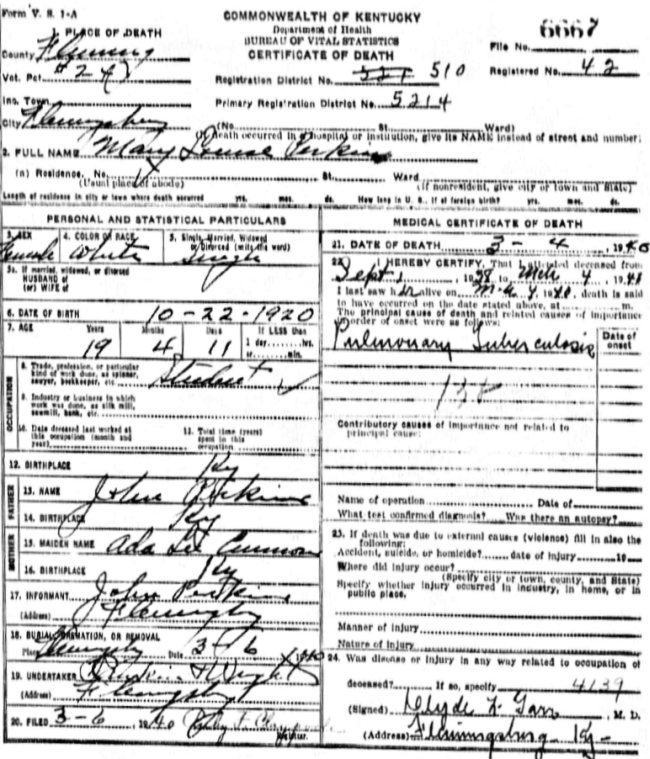 Form V. S. 1-A
COMMONWEALTH OF KENTUCKY
Department of Health
BUREAU OF VITAL STATISTICS
CERTIFICATE OF DEATH
6667
File No.
Registered No. 42
1 PLACE OF DEATH
County Fleming
Vot. Pct. #2
Registration District No. 510
Inc. Town
Primary Registration District No. 5214
City Flemingsburg (No. St. Ward)
(If death occurred in a hospital or institution, give its NAME instead of street and number)
2. FULL NAME Mary Louise Perkins
(a) Residence. No. St. Ward
(Usual place of abode) (If nonresident, give city or town and State)
Length of residence in city or town where death occurred yrs. mos. ds. How long in U. S., if of foreign birth? yrs. mos. ds.
PERSONAL AND STATISTICAL PARTICULARS
3. SEX 4. COLOR OR RACE 5. Single, Married, Widowed
or Divorced (write the word)
Female White Single
5a. If married, widowed, or divorced
HUSBAND of
(or) WIFE of
6. DATE OF BIRTH 10-22-1920
7. AGE Years Months Days If LESS than
1 day hrs.
or min.
19 4 11
OCCUPATION
8. Trade, profession, or particular
kind of work done, as spinner,
sawyer, bookkeeper, etc. Student
9. Industry or business in which
work was done, as silk mill,
sawmill, bank, etc.
10. Date deceased last worked at
this occupation (month and
year)
11. Total time (years)
spent in this
occupation
12. BIRTHPLACE Ky
FATHER
13. NAME John Perkins
14. BIRTHPLACE Ky
MOTHER
15. MAIDEN NAME Ada
16. BIRTHPLACE Ky
17. INFORMANT John Perkins
(Address) Flemingsburg
18. BURIAL, CREMATION, OR REMOVAL
Place Flemingsburg Date 3-6 1940
19. UNDERTAKER
(Address) Flemingsburg
20. FILED 3-6, 1940
Registrar.
MEDICAL CERTIFICATE OF DEATH
21. DATE OF DEATH 3-4, 1940
22. I HEREBY CERTIFY, That I attended deceased from
Sept 1, 1938 to Mch 4, 1940
I last saw her alive on 1940, death is said
to have occurred on the date stated above, at m.
The principal cause of death and related causes of importance
in order of onset were as follows:
Date of
onset
Pulmonary Tuberculosis
Contributory causes of importance not related to
principal cause:
Name of operation Date of
What test confirmed diagnosis? Was there an autopsy?
23. If death was due to external causes (violence) fill in also the
following:
Accident, suicide, or homicide? date of injury 19
Where did injury occur?
(Specify city or town, county, and State)
Specify whether injury occurred in industry, in home, or in
public place.
Manner of injury
Nature of injury
24. Was disease or injury in any way related to occupation of
deceased? If so, specify 4139
(Signed) Clyde , M. D.
(Address) Flemingsburg Ky-